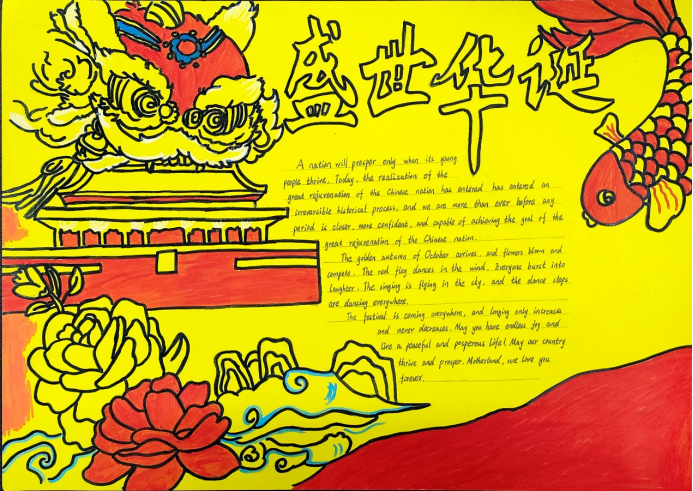 盛世华诞
A nation will prosper only when its young
people thrive. Today, the realization of the
great rejuvenation of the Chinese nation has entered has entered an
irreversible historical process, and we are more than ever before any
period is closer, more confident, and capable of achieving the goal of the
great rejuvenation of the Chinese nation.
The golden autumn of October arrives, and flowers bloom and
compete. The red flag dances in the wind. Everyone burst into
laughter. The singing is flying in the sky, and the dance steps
are dancing everywhere.
The festival is coming everywhere, and longing only increases
and never decreases. May you have endless joy and
live a peaceful and posperous life! May our country
thrive and prosper. Motherland, we love you
forever.